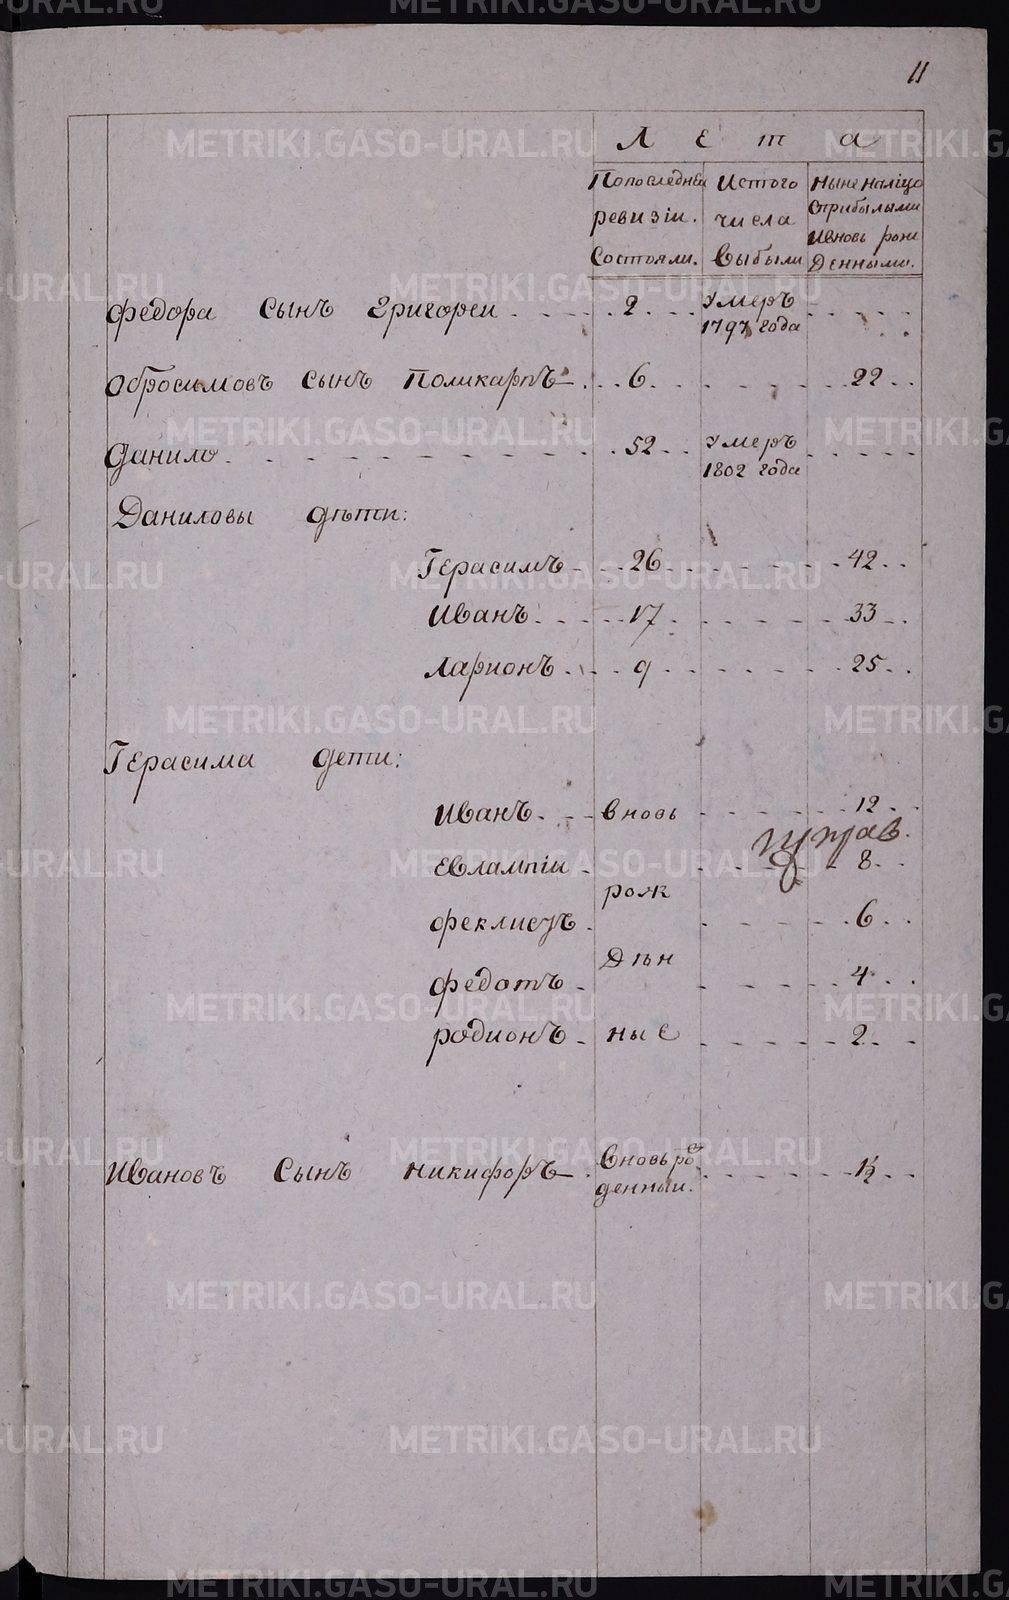 11
Лета
Попоследней Истого Ныне налiцо
ревизiи. числа Сприбылыми
Состояли. Выбыли Ивновь рож
Денными.
Федора Сынъ Григореи 2 Умеръ
1797 года
Обросимовъ Сынъ Поликарпъ 6 22
Данило 52 Умеръ
1802 года
Даниловы дѣти:
Герасимъ 26 42
Иванъ 17 33
Ларионъ 9 25
Герасима дети:
Иванъ вновь 12
Евлампiи 8
рож
Феклистъ 6
Дѣн
Федотъ 4
родионъ ные 2
Ивановъ Сынъ Никифоръ Вновь ро
денныи. 1½
METRIKI.GASO-URAL.RU